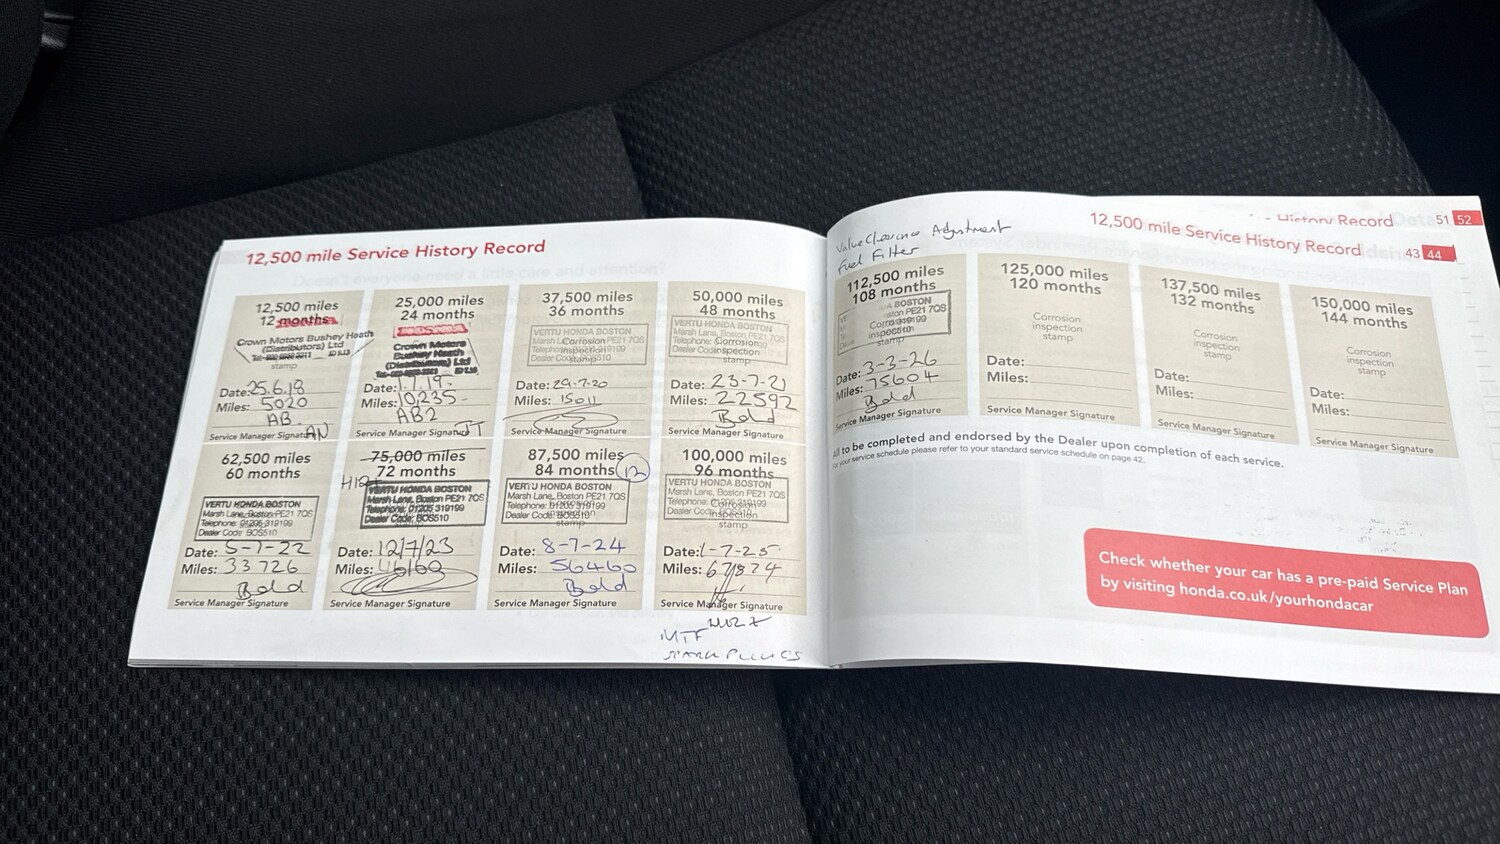 12,500 mile Service History Record
12,500 miles
12 months
Crown Motors Bushey Heath
(Distributors) Ltd
stamp
Date: 25.6.18
Miles: 5020
AB.
AN
Service Manager Signature
25,000 miles
24 months
Crown Motors
Bushey Heath
(Distributors) Ltd
Date: 1.7.19.
Miles: 10,235-
AB2
JT
Service Manager Signature
37,500 miles
36 months
VERTU HONDA BOSTON
Marsh Lane, Boston PE21 7QS
Corrosion
inspection
stamp
Date: 29.7.20
Miles: 15011
Service Manager Signature
50,000 miles
48 months
VERTU HONDA BOSTON
Marsh Lane, Boston PE21 7QS
Corrosion
inspection
stamp
Date: 23-7-21
Miles: 22592
Service Manager Signature
62,500 miles
60 months
VERTU HONDA BOSTON
Marsh Lane, Boston PE21 7QS
Telephone: 01205 319199
Dealer Code: BOS510
Date: 5-7-22
Miles: 33726
Service Manager Signature
75,000 miles
72 months
VERTU HONDA BOSTON
Marsh Lane, Boston PE21 7QS
Telephone: 01205 319199
Dealer Code: BOS510
Date: 12/7/23
Miles: 46160
Service Manager Signature
87,500 miles
84 months
VERTU HONDA BOSTON
Marsh Lane, Boston PE21 7QS
Telephone: 01205 319199
Dealer Code: BOS510
stamp
Date: 8-7-24
Miles: 56460
Service Manager Signature
100,000 miles
96 months
VERTU HONDA BOSTON
Marsh Lane, Boston PE21 7QS
Telephone: 01205 319199
Dealer Code: BOS510
Corrosion
inspection
stamp
Date: 1-7-25
Miles: 67874
Service Manager Signature
MTF
SPARK PLUGS
History Record
51 52
12,500 mile Service History Record
43 44
Valve Clearance Adjustment
Fuel Filter
112,500 miles
108 months
BOSTON
PE21 7QS
Corrosion
inspection
stamp
Date: 3-3-26
Miles: 75604
Service Manager Signature
125,000 miles
120 months
Corrosion
inspection
stamp
Date:
Miles:
Service Manager Signature
137,500 miles
132 months
Corrosion
inspection
stamp
Date:
Miles:
Service Manager Signature
150,000 miles
144 months
Corrosion
inspection
stamp
Date:
Miles:
Service Manager Signature
to be completed and endorsed by the Dealer upon completion of each service.
your service schedule please refer to your standard service schedule on page 42.
Check whether your car has a pre-paid Service Plan
by visiting honda.co.uk/yourhondacar